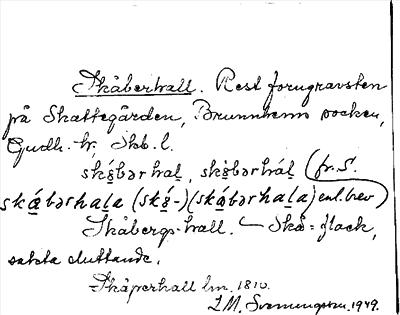 Skåberhall. Rest forngravsten
på Skattegården, Brunnhems socken,
Gudh. hr, Skb. l.
skå̱bərhaḻ, skå̱bərháḻ (fr. S.
ská̱bərhaḻa (skǻ̱-) (ská̱bərhaḻa) enl. brev)
Skåbergs-hall. – Skå = flack,
sakta sluttande.
Skåperhall lm. 1810.
I. M. Svenungsson. 1949.